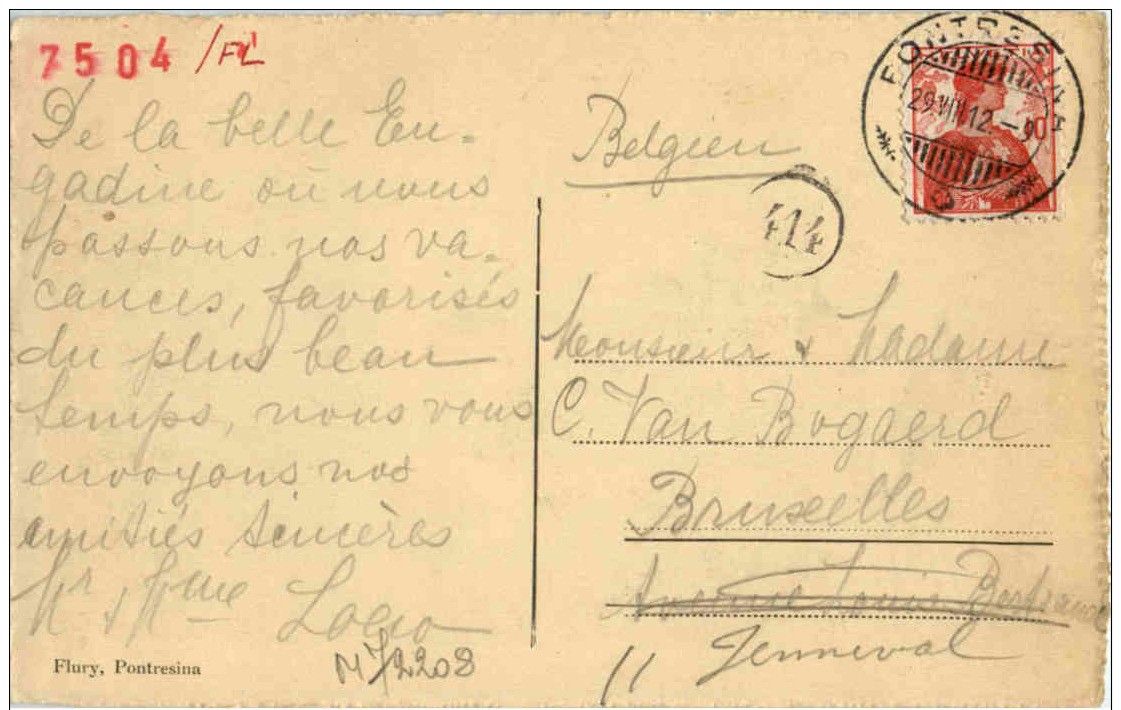 7504 /FL
De la belle En-
gadine où nous
passons nos va-
cances, favorisés
du plus beau
temps, nous vous
envoyons nos
amitiés sincères
Mr & Mme
Flury, Pontresina
PONTRESINA
29.VIII.12.-9
Belgien
414
Monsieur & Madame
C. Van Bogaerd
Bruxelles
Avenue Louis
11 Jenneval